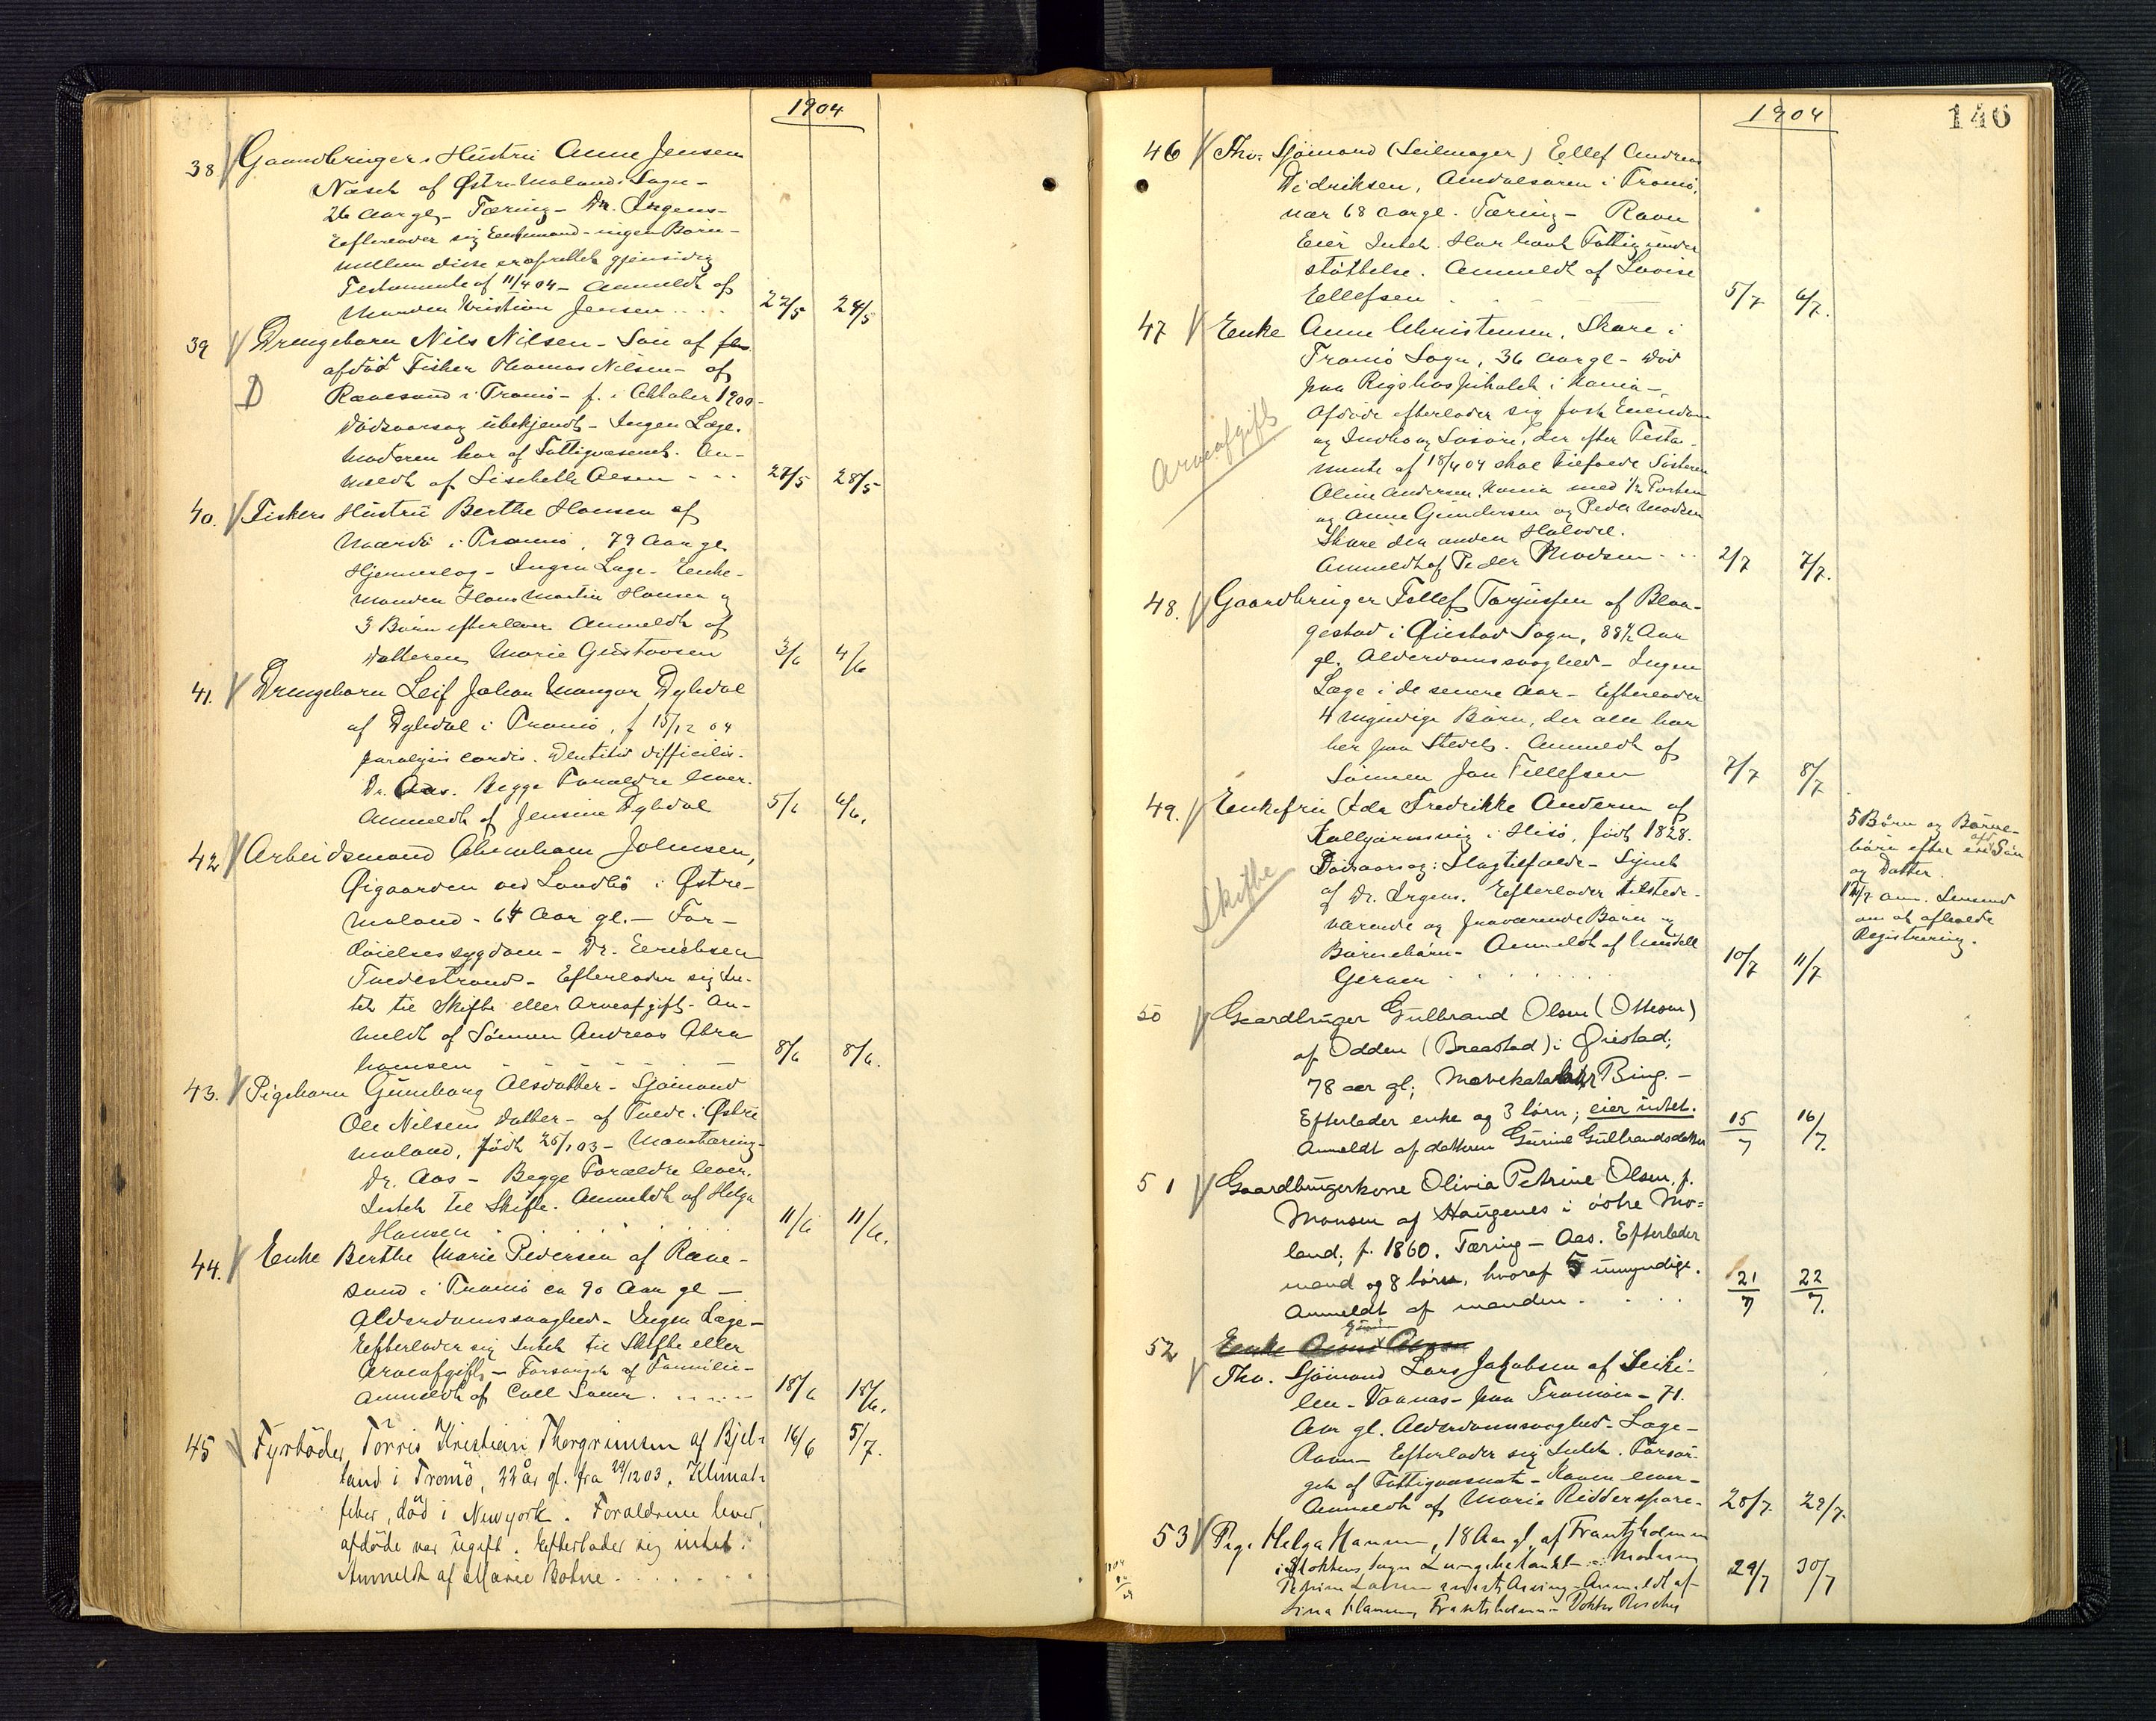 1904
38 Gaardbruger Hustru Anne Jensen
Næset af Østre Molands Sogn -
26 Aar gl. Tæring - Dr. Irgens -
Efterlader sig Enkemand - ingen Børn -
mellem disse er oprettet gjensidig
Testamente af 11/4 04 - Anmeldt af
Manden Kristian Jensen . . . 27/5 28/5
39 Drengebarn Nils Nilsen - Søn af
afdød Fisker Thomas Nilsen - af
D Rævesand i Tromø - f. i Oktober 1900 -
Dødsaarsag ubekjendt - Ingen Læge.
Moderen har af Fattigvæsenet. An-
meldt af Lisebeth Olsen - . . 27/5 28/5
40. Fiskers Hustru Berthe Hansen af
Mærdø i Tromø, 79 Aar gl.
Hjerneslag - Ingen Læge. Enke-
manden Hans Martin Hansen og
3 Børn efterlever Anmeldt af
Datteren Marie Gustavsen 3/6 4/6
41. Drengebarn Leif Johan Dybdal
af Dybdal i Tromø, f 15/12 04
paralysis cordis. dentitio difficilis.
Dr. Aas. Begge Forældre lever.
Anmeldt af Jensine Dybdal 5/6 6/6.
42 Arbeidsmand Abraham Johnsen,
Øigaarden ved Landbø i Østre-
moland - 64 Aar gl. - For-
døielsessygdom - Dr. Erichsen
Tvedestrand - Efterlader sig In-
tet til Skifte eller Arveafgift. An-
meldt af Sønnen Andreas Abra
hamsen 8/6 8/6.
43. Pigebarn Gunborg Olsdatter - Sjømand
Ole Nilsens Datter - af Tvede i Østre
moland, født 25/1 03 - Mavetæring -
Dr. Aas - Begge Forældre lever.
Intet til Skifte. Anmeldt af Helga
Hansen 11/6 11/6.
44. Enke Berthe Marie Pedersen af Ræve-
sand i Tromø ca 90 Aar gl -
Alderdomssvaghed - Ingen Læge -
Efterlader sig Intet til Skifte eller
Arveafgift - Forsørget af Familie -
Anmeldt af 18/6 18/6.
45 Fyrbøder Torris Kristian Thorgrimsen af Bjel-
land i Tromö, 22 år gl. fra 29/12 03. Klimat-
feber, död i Newyork. Foraldrene lever,
afdöde var ugift. Efterlader sig intet.
Anmeldt af Marie Bohne . . . 16/6 5/7.
1904
146
46 Fhv. Sjømand (Seilmager) Ellef Andreas
Didriksen, Aindalsøren i Tromø,
nær 68 Aar gl. Tæring - Ravn
Eier Intet. Har havt Fattigunder
støttelse. Anmeldt af Lovise
Ellefsen 5/7 6/7.
47 Enke Anne Christensen, Skare i
Tromø Sogn, 36 Aar gl - død
paa Rigshospitalet i Kania -
Arveafgift
Afdøde efterlader sig fast Eiendom
og Indbo og Løsøre, der efter Testa-
mente af 18/4 04 skal tilfalde Søsteren
Oline Andersen, Kania med 1/2 Parten
og Anne Gundersen og Peder Madsen
Skare den anden Halvdel.
Anmeldt af Peder Madsen . . . 2/7 7/7.
48. Gaardbruger Tellef Torjussen af Blaa-
gestad i Øiestad Sogn, 88 1/2 Aar
gl. Alderdomssvaghed - Ingen
Læge i de senere Aar - Efterlader
4 myndige Børn, der alle bor
her paa Stedet. Anmeldt af
Sønnen Jon Tellefsen 7/7 8/7
49. Enkefru Ida Fredrikke Andersen af
Kolbjørnsvig i Hisø, født 1828.
Dødsaarsag: Slagtilfælde - Synet
Skifte
af Dr. Irgens. Efterlader tilstede-
værende og fraværende Børn og
Børnebørn - Anmeldt af
10/7 11/7
5 Børn og Børne-
børn efter en afd Søn
og Datter.
12/7 anm. Lensmd
om at afholde
Registrering.
50 Gaardbruger Gulbrand Olsen (Ottesen)
af Odden (Breastad) i Øiestad;
78 aar gl; Mavekatarrh Bing. -
Efterlader enke og 3 børn; eier intet.
Anmeldt af datteren Gurine Gulbrandsdatter 15/7 16/7.
51 Gaardbrugerkone Olivia Petrine Olsen, f.
Monsen af Haugenes i østre Mo=
land; f. 1860. Tæring - Aas. Efterlader
mand og 8 børn, hvoraf 5 umyndige.
Anmeldt af manden . . . 21/7 22/7.
52 Enke
Fhv. Sjömand Lars Jakobsen af Leiki-
len - Vaanas - paa Tromøen - 71
Aar gl. Alderdomssvaghed - Læge -
Ravn - Efterlader sig Intet. Forsør-
get af Fattigvæsenet - Konen lever -
Anmeldt af Marie Ridderspore - 28/7. 29/7.
53 Pige Helga Hansen, 18 Aar gl. af Frantzholmen
i Stokkens Sogn Lungebetændt - Moderen
Anmeldt af
Lina Hansen, Frantsholmen - Doktor 29/7 30/7